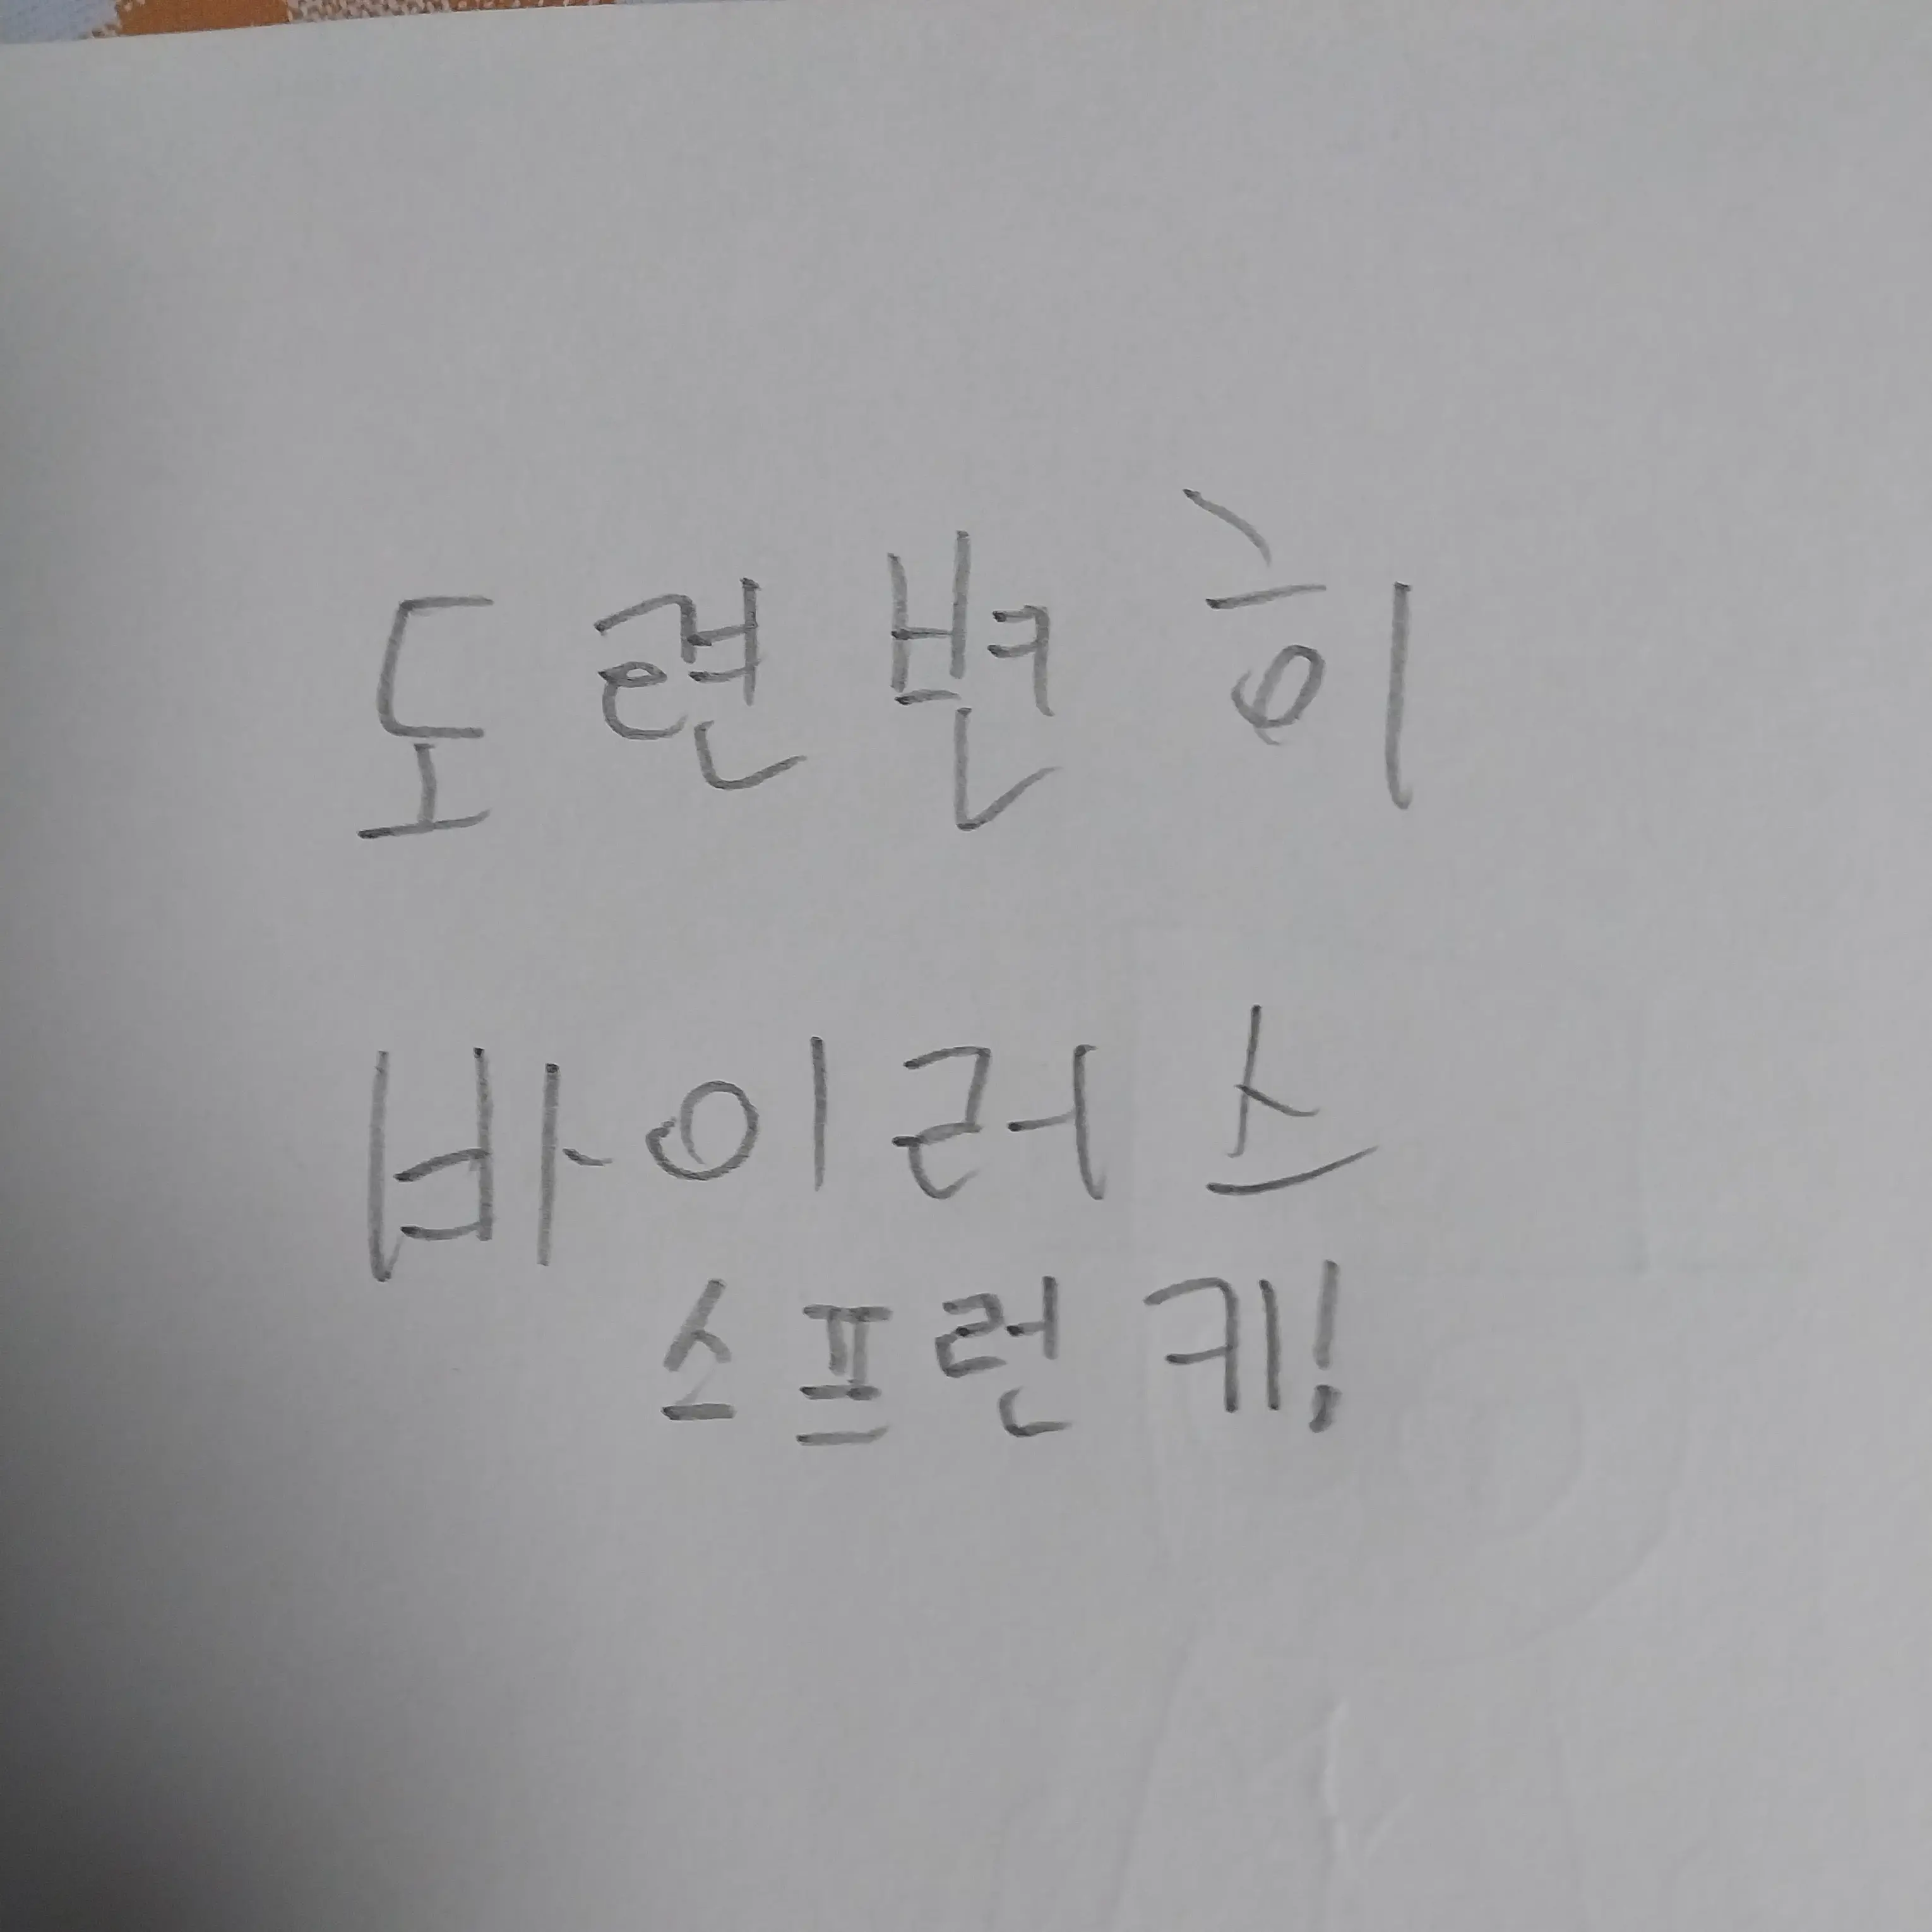 도련변히
바이러스
스프런키!